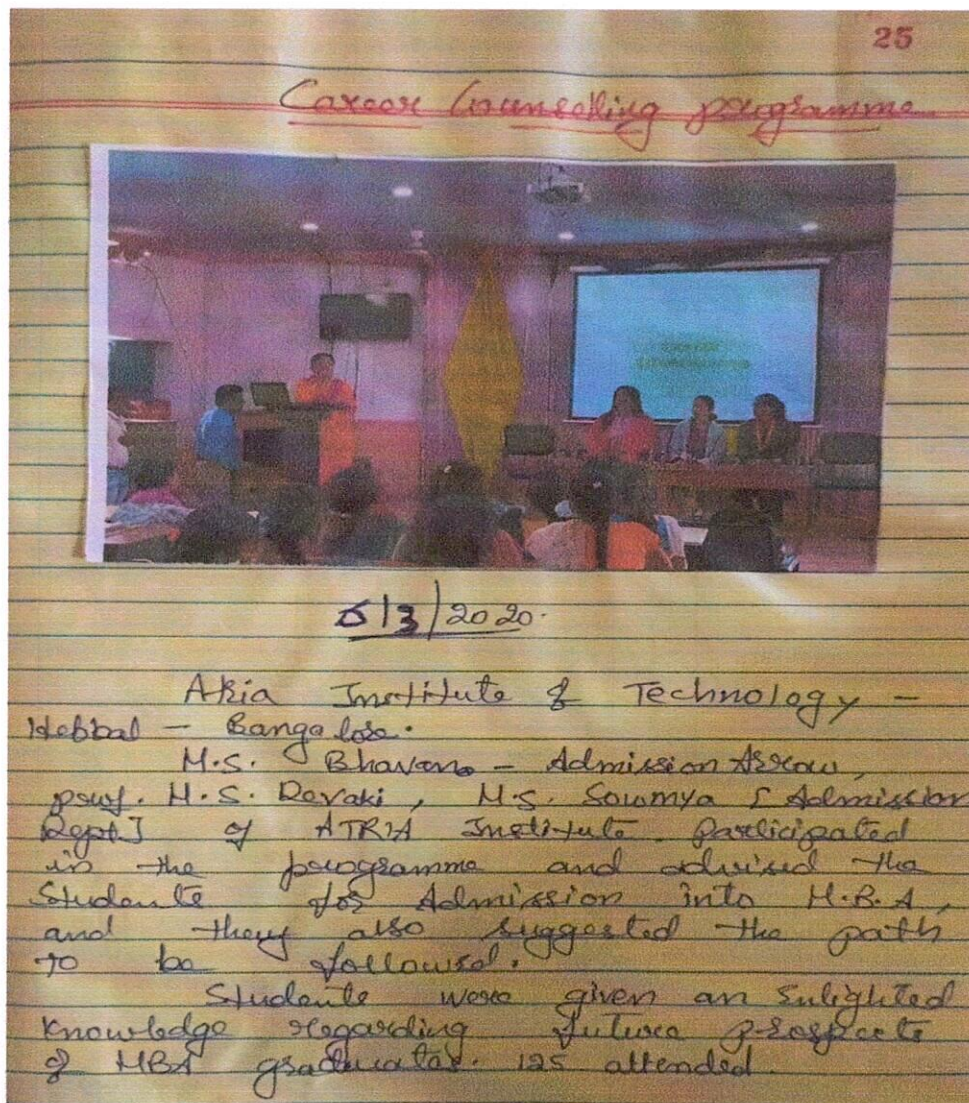 25
Career Counselling programme
5/3/2020.
Atria Institute & Technology -
Hebbal - Bangalore.
M.S. Bhavana - Admission
prof. M.S. Revaki, M.S. Sowmya [Admission
Dept.] of ATRIA Institute Participated
in the programme and advised the
Students for Admission into M.B.A,
and they also suggested the path
to be followed.
Students were given an Enlighted
knowledge regarding future prospects
of MBA graduates. 125 attended.